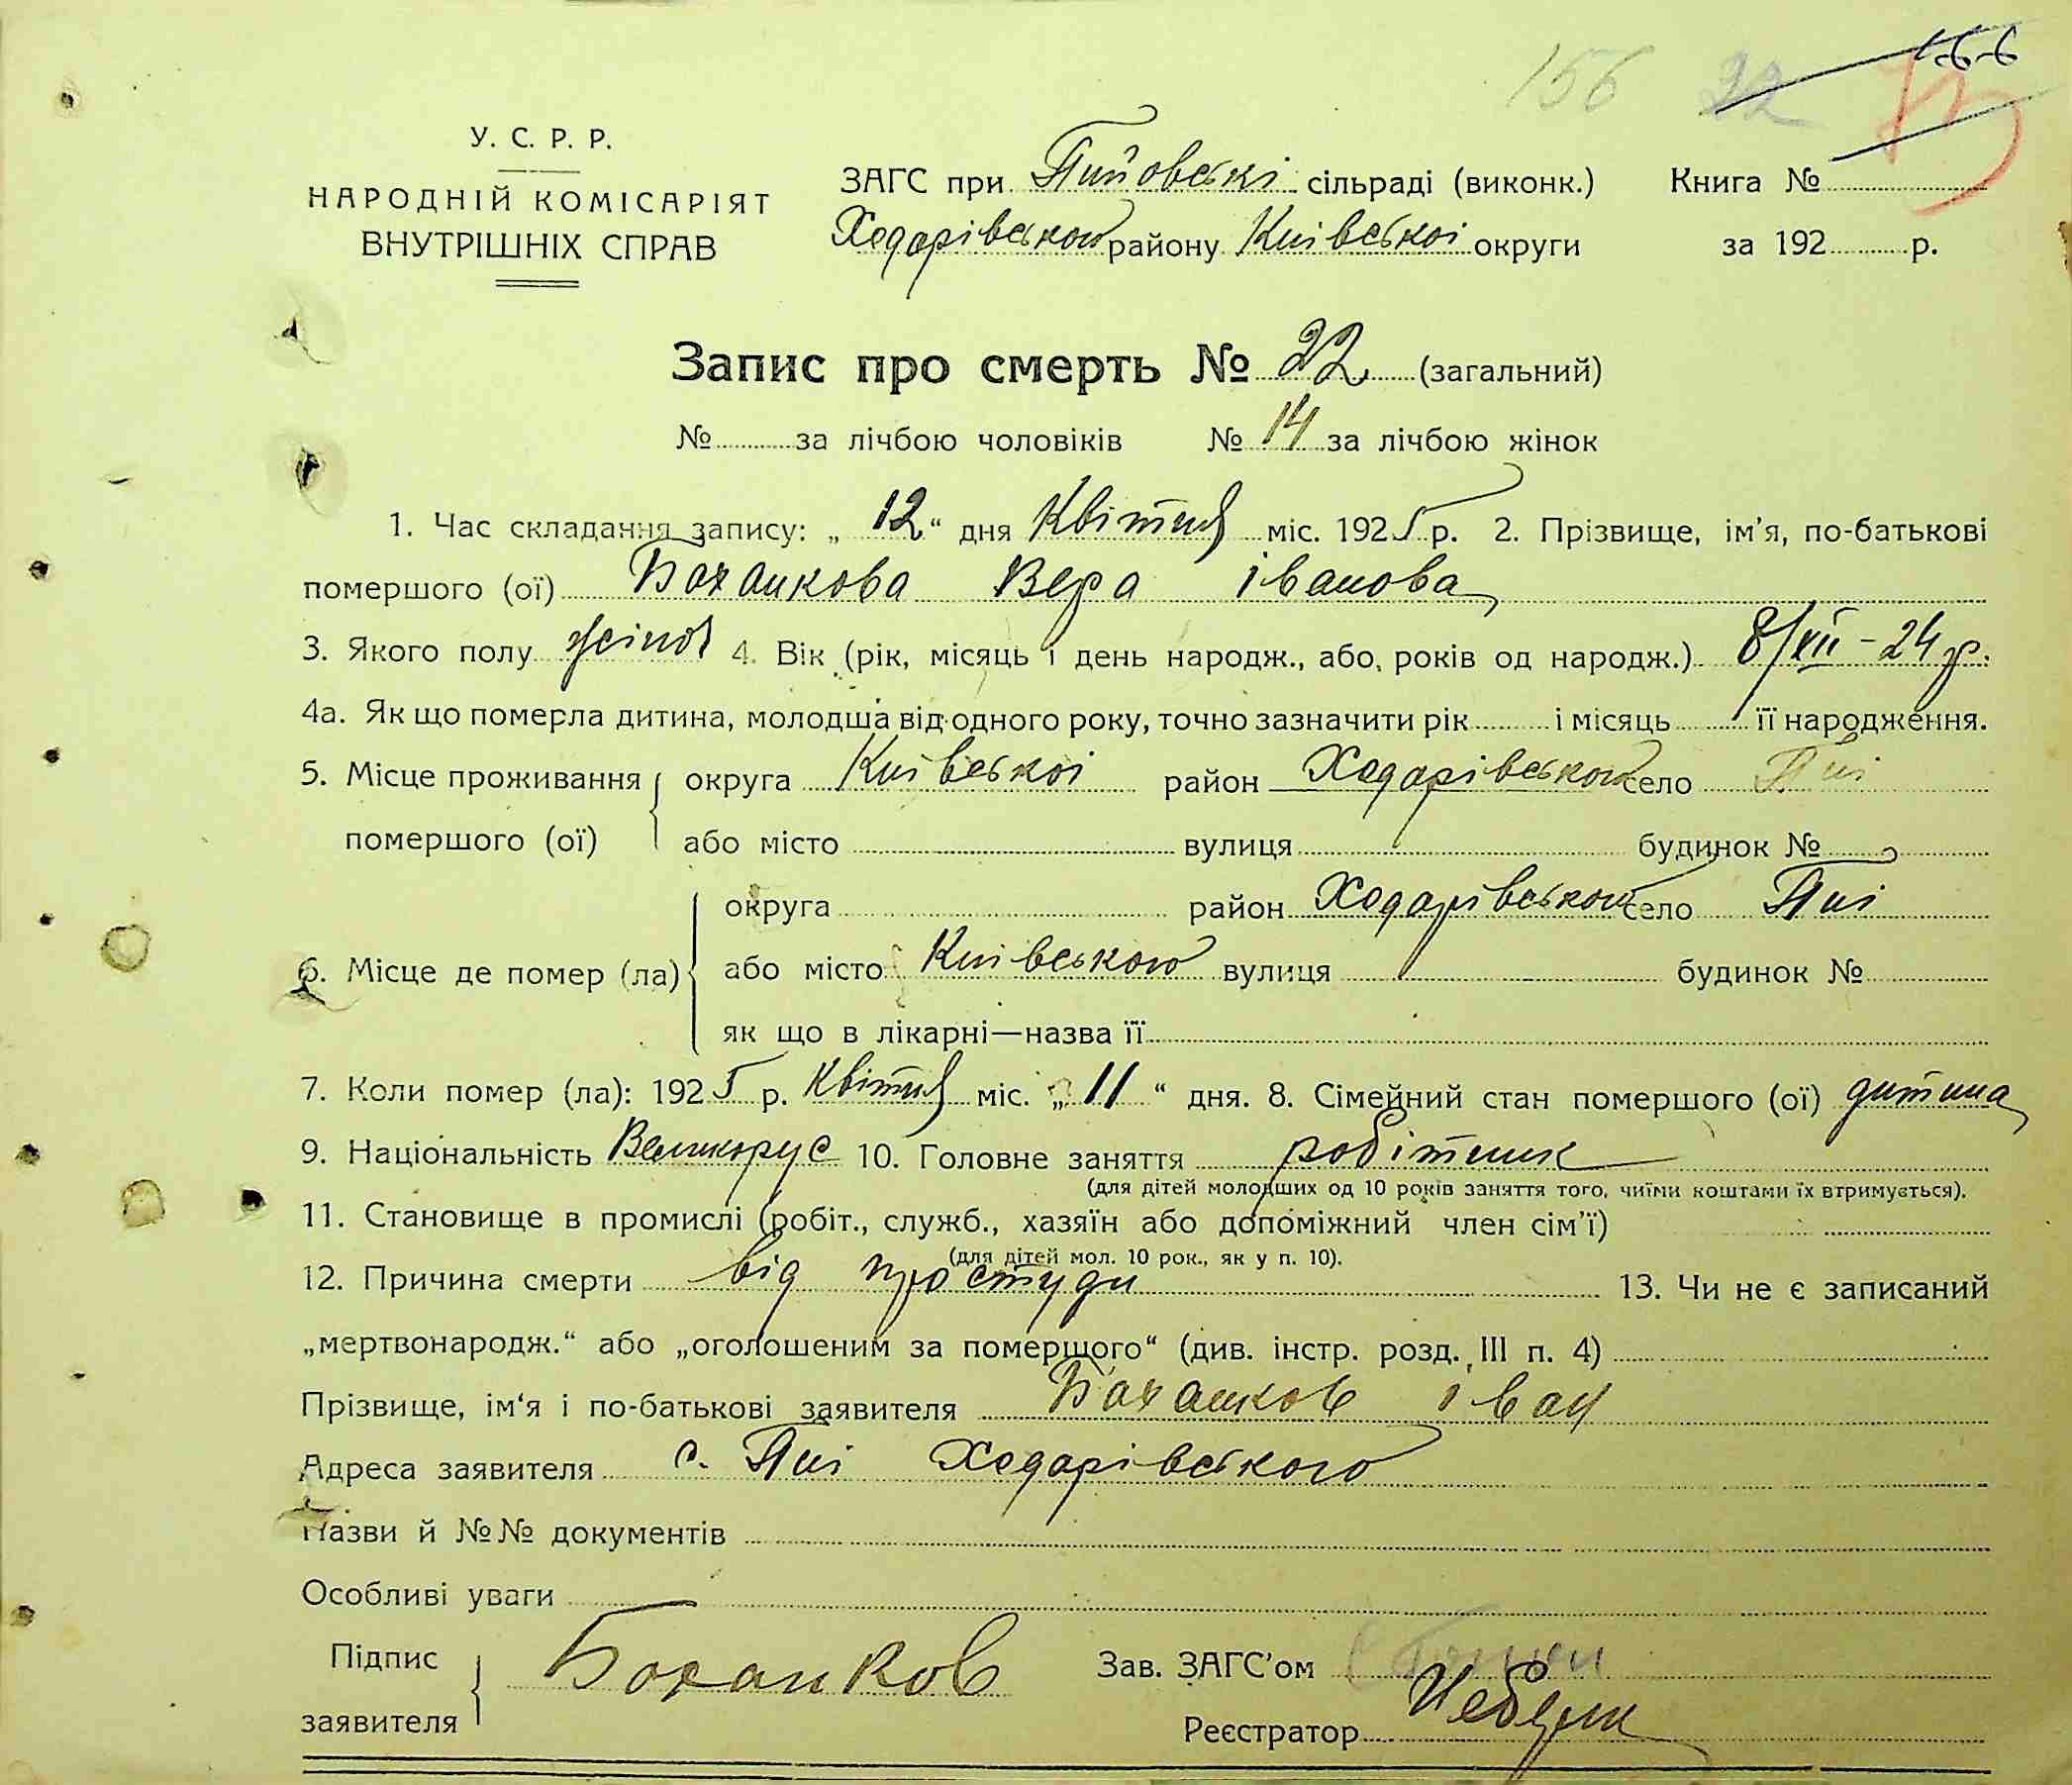 156 22 166
У. С. Р. Р.
НАРОДНІЙ КОМІСАРІЯТ
ВНУТРІШНІХ СПРАВ
ЗАГС при Пийовські сільраді (виконк.) Книга №
Ходарівського району Киівськоі округи за 192 р.
Запис про смерть № 22 (загальний)
№ за лічбою чоловіків № 14 за лічбою жінок
1. Час складання запису: „ 12 “ дня Квітня міс. 1925 р. 2. Прізвище, ім'я, по-батькові
помершого (ої) Боханкова Вера Іванова
3. Якого полу жіноч 4. Вік (рік, місяць і день народж., або, років од народж.) 8/XII - 24 р.
4а. Як що померла дитина, молодша від одного року, точно зазначити рік і місяць її народження.
5. Місце проживання округа Киівськоі район Ходарівського село Пиі
помершого (ої) або місто вулиця будинок №
округа район Ходарівського село Пиі
6. Місце де помер (ла) або місто Киівського вулиця будинок №
як що в лікарні—назва її
7. Коли помер (ла): 1925 р. Квітня міс. „ 11 “ дня. 8. Сімейний стан помершого (ої) дитина
9. Національність Великорус 10. Головне заняття робітник
(для дітей молодших од 10 років заняття того, чиїми коштами їх втримується).
11. Становище в промислі (робіт., служб., хазяїн або допоміжний член сім'ї)
(для дітей мол. 10 рок., як у п. 10).
12. Причина смерти від простуди 13. Чи не є записаний
„мертвонародж.“ або „оголошеним за помершого“ (див. інстр. розд. III п. 4)
Прізвище, ім'я і по-батькові заявителя Боханков Іван
Адреса заявителя с. Пиі Ходарівського
Назви й №№ документів
Особливі уваги
Підпис Боханков Зав. ЗАГС'ом
заявителя Реєстратор